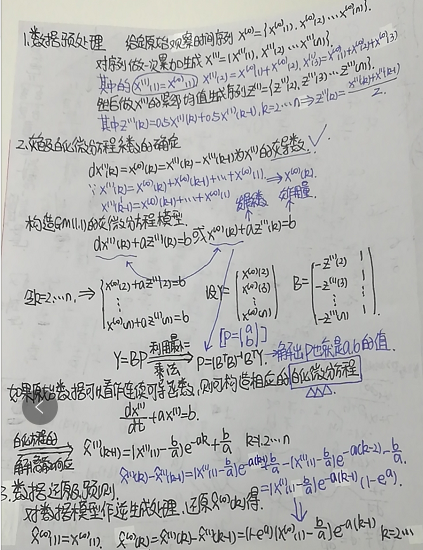 1.数据预处理 给定原始观察时间序列 X⁽⁰⁾={X⁽⁰⁾(1), X⁽⁰⁾(2) … X⁽⁰⁾(n)}.
对序列做一次累加生成 X⁽¹⁾={X⁽¹⁾(1), X⁽¹⁾(2) … X⁽¹⁾(n)}.
其中的 X⁽¹⁾(1)=X⁽⁰⁾(1), X⁽¹⁾(2)=X⁽⁰⁾(1)+X⁽⁰⁾(2), X⁽¹⁾(3)=X⁽⁰⁾(1)+X⁽⁰⁾(2)+X⁽⁰⁾(3)
然后做X⁽¹⁾的紧邻均值生成序列 Z⁽¹⁾={Z⁽¹⁾(2), Z⁽¹⁾(3) … Z⁽¹⁾(n)}.
其中Z⁽¹⁾(k)=0.5X⁽¹⁾(k)+0.5X⁽¹⁾(k-1), k=2…n ⇒ Z⁽¹⁾(k)=(X⁽¹⁾(k)+X⁽¹⁾(k-1))/2.
2. 白化微分方程系数的确定
dX⁽¹⁾(k)=X⁽⁰⁾(k)=X⁽¹⁾(k)-X⁽¹⁾(k-1)为X⁽¹⁾的灰导数. ✓
∵ X⁽¹⁾(k)=X⁽⁰⁾(k)+X⁽⁰⁾(k-1)+…+X⁽⁰⁾(1) → X⁽⁰⁾(k).
X⁽¹⁾(k-1)=X⁽⁰⁾(k-1)+…+X⁽⁰⁾(1)
构造GM(1,1)的灰微分方程模型.
dX⁽¹⁾(k)+aZ⁽¹⁾(k)=b 或 X⁽⁰⁾(k)+aZ⁽¹⁾(k)=b
当k=2…n, ⇒ { X⁽⁰⁾(2)+aZ⁽¹⁾(2)=b ⋮ X⁽⁰⁾(n)+aZ⁽¹⁾(n)=b 设Y=(X⁽⁰⁾(2) X⁽⁰⁾(3) ⋮ X⁽⁰⁾(n)) B=(-Z⁽¹⁾(2) 1 -Z⁽¹⁾(3) 1 ⋮ -Z⁽¹⁾(n) 1)
[P=(a b)]
Y=BP 利用最小二乘法 P=(BᵀB)⁻¹BᵀY. →解出P也就是a,b的值.
如果原始数据可以看作连续可导函数,则可构造相应的白化微分方程
dX⁽¹⁾/dt+aX⁽¹⁾=b.
白化方程的解为响应 X̂⁽¹⁾(k+1)=(X⁽¹⁾(1)-b/a)e^-ak+b/a k=1,2…n
X̂⁽¹⁾(k)-X̂⁽¹⁾(k-1)=(X⁽¹⁾(1)-b/a)e^-a(k-1)+b/a-(X⁽¹⁾(1)-b/a)e^-a(k-2)-b/a.
3.数据还原及预测. =(X⁽¹⁾(1)-b/a)e^-a(k-1)(1-e^a)
对数据模型作逆生成处理,还原X̂⁽⁰⁾(k)得.
X̂⁽⁰⁾(1)=X⁽⁰⁾(1). X̂⁽⁰⁾(k)=X̂⁽¹⁾(k)-X̂⁽¹⁾(k-1)=(1-e^a)(X⁽⁰⁾(1)-b/a)e^-a(k-1) k=2…